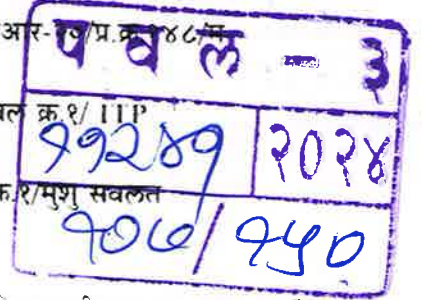 आर-१०/प्र.क्र.१४८/म
पवल - ३
वल क्र.१/ ITP
११२४१ २०२४
क्र.१/मुशु सवलत
१०७/१५०